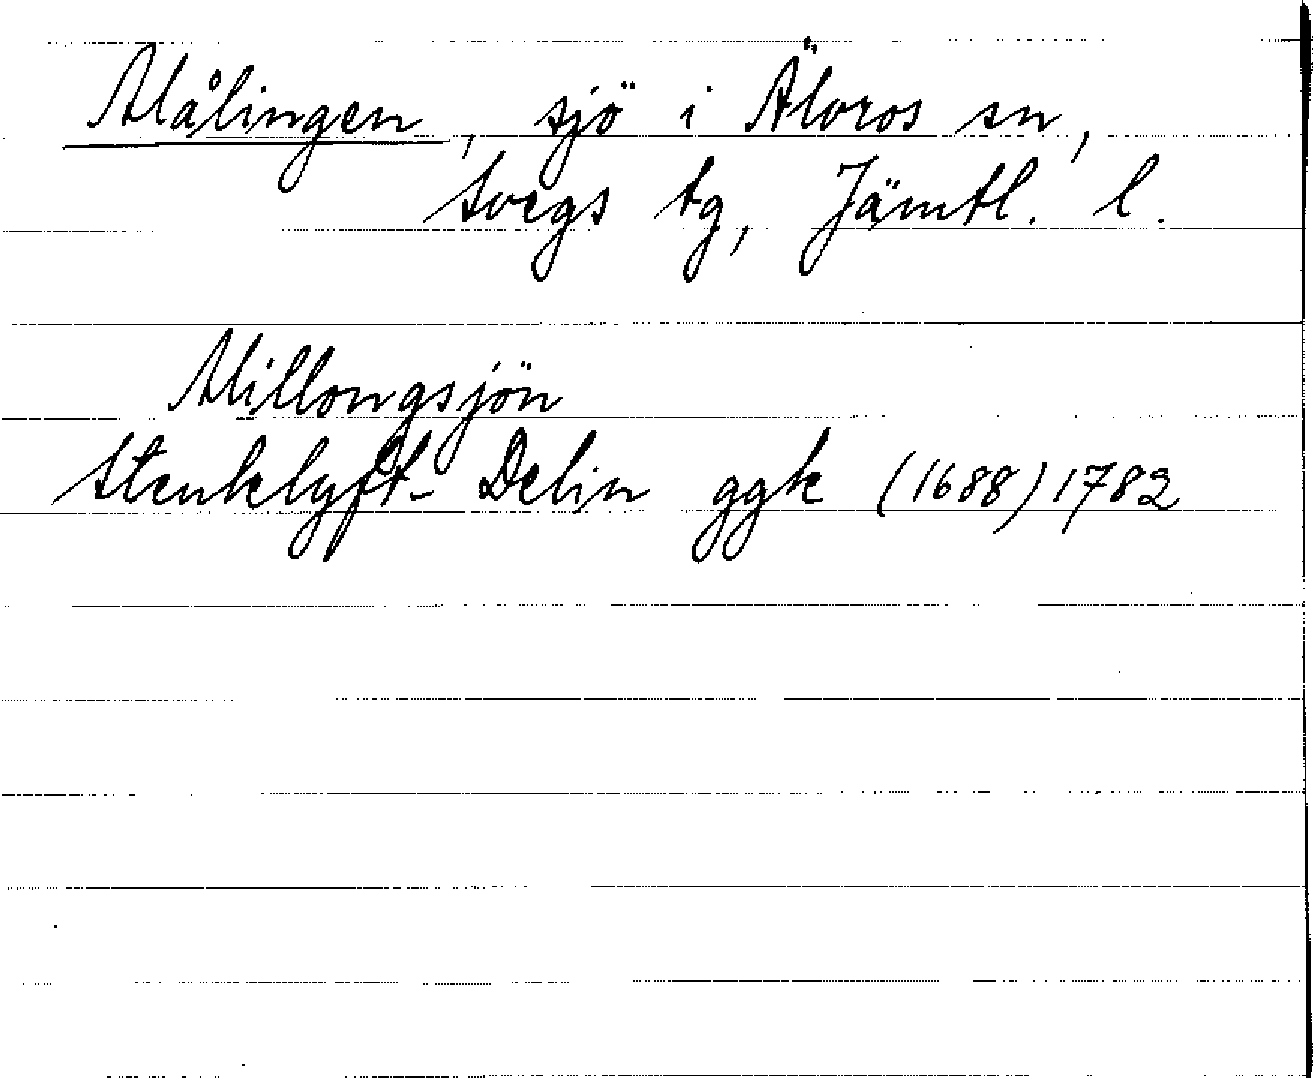 Målingen, sjö i Älvros sn,
Svegs tg, Jämtl. l.
Millongsjön
Stenklyft-Delin ggk (1688) 1782